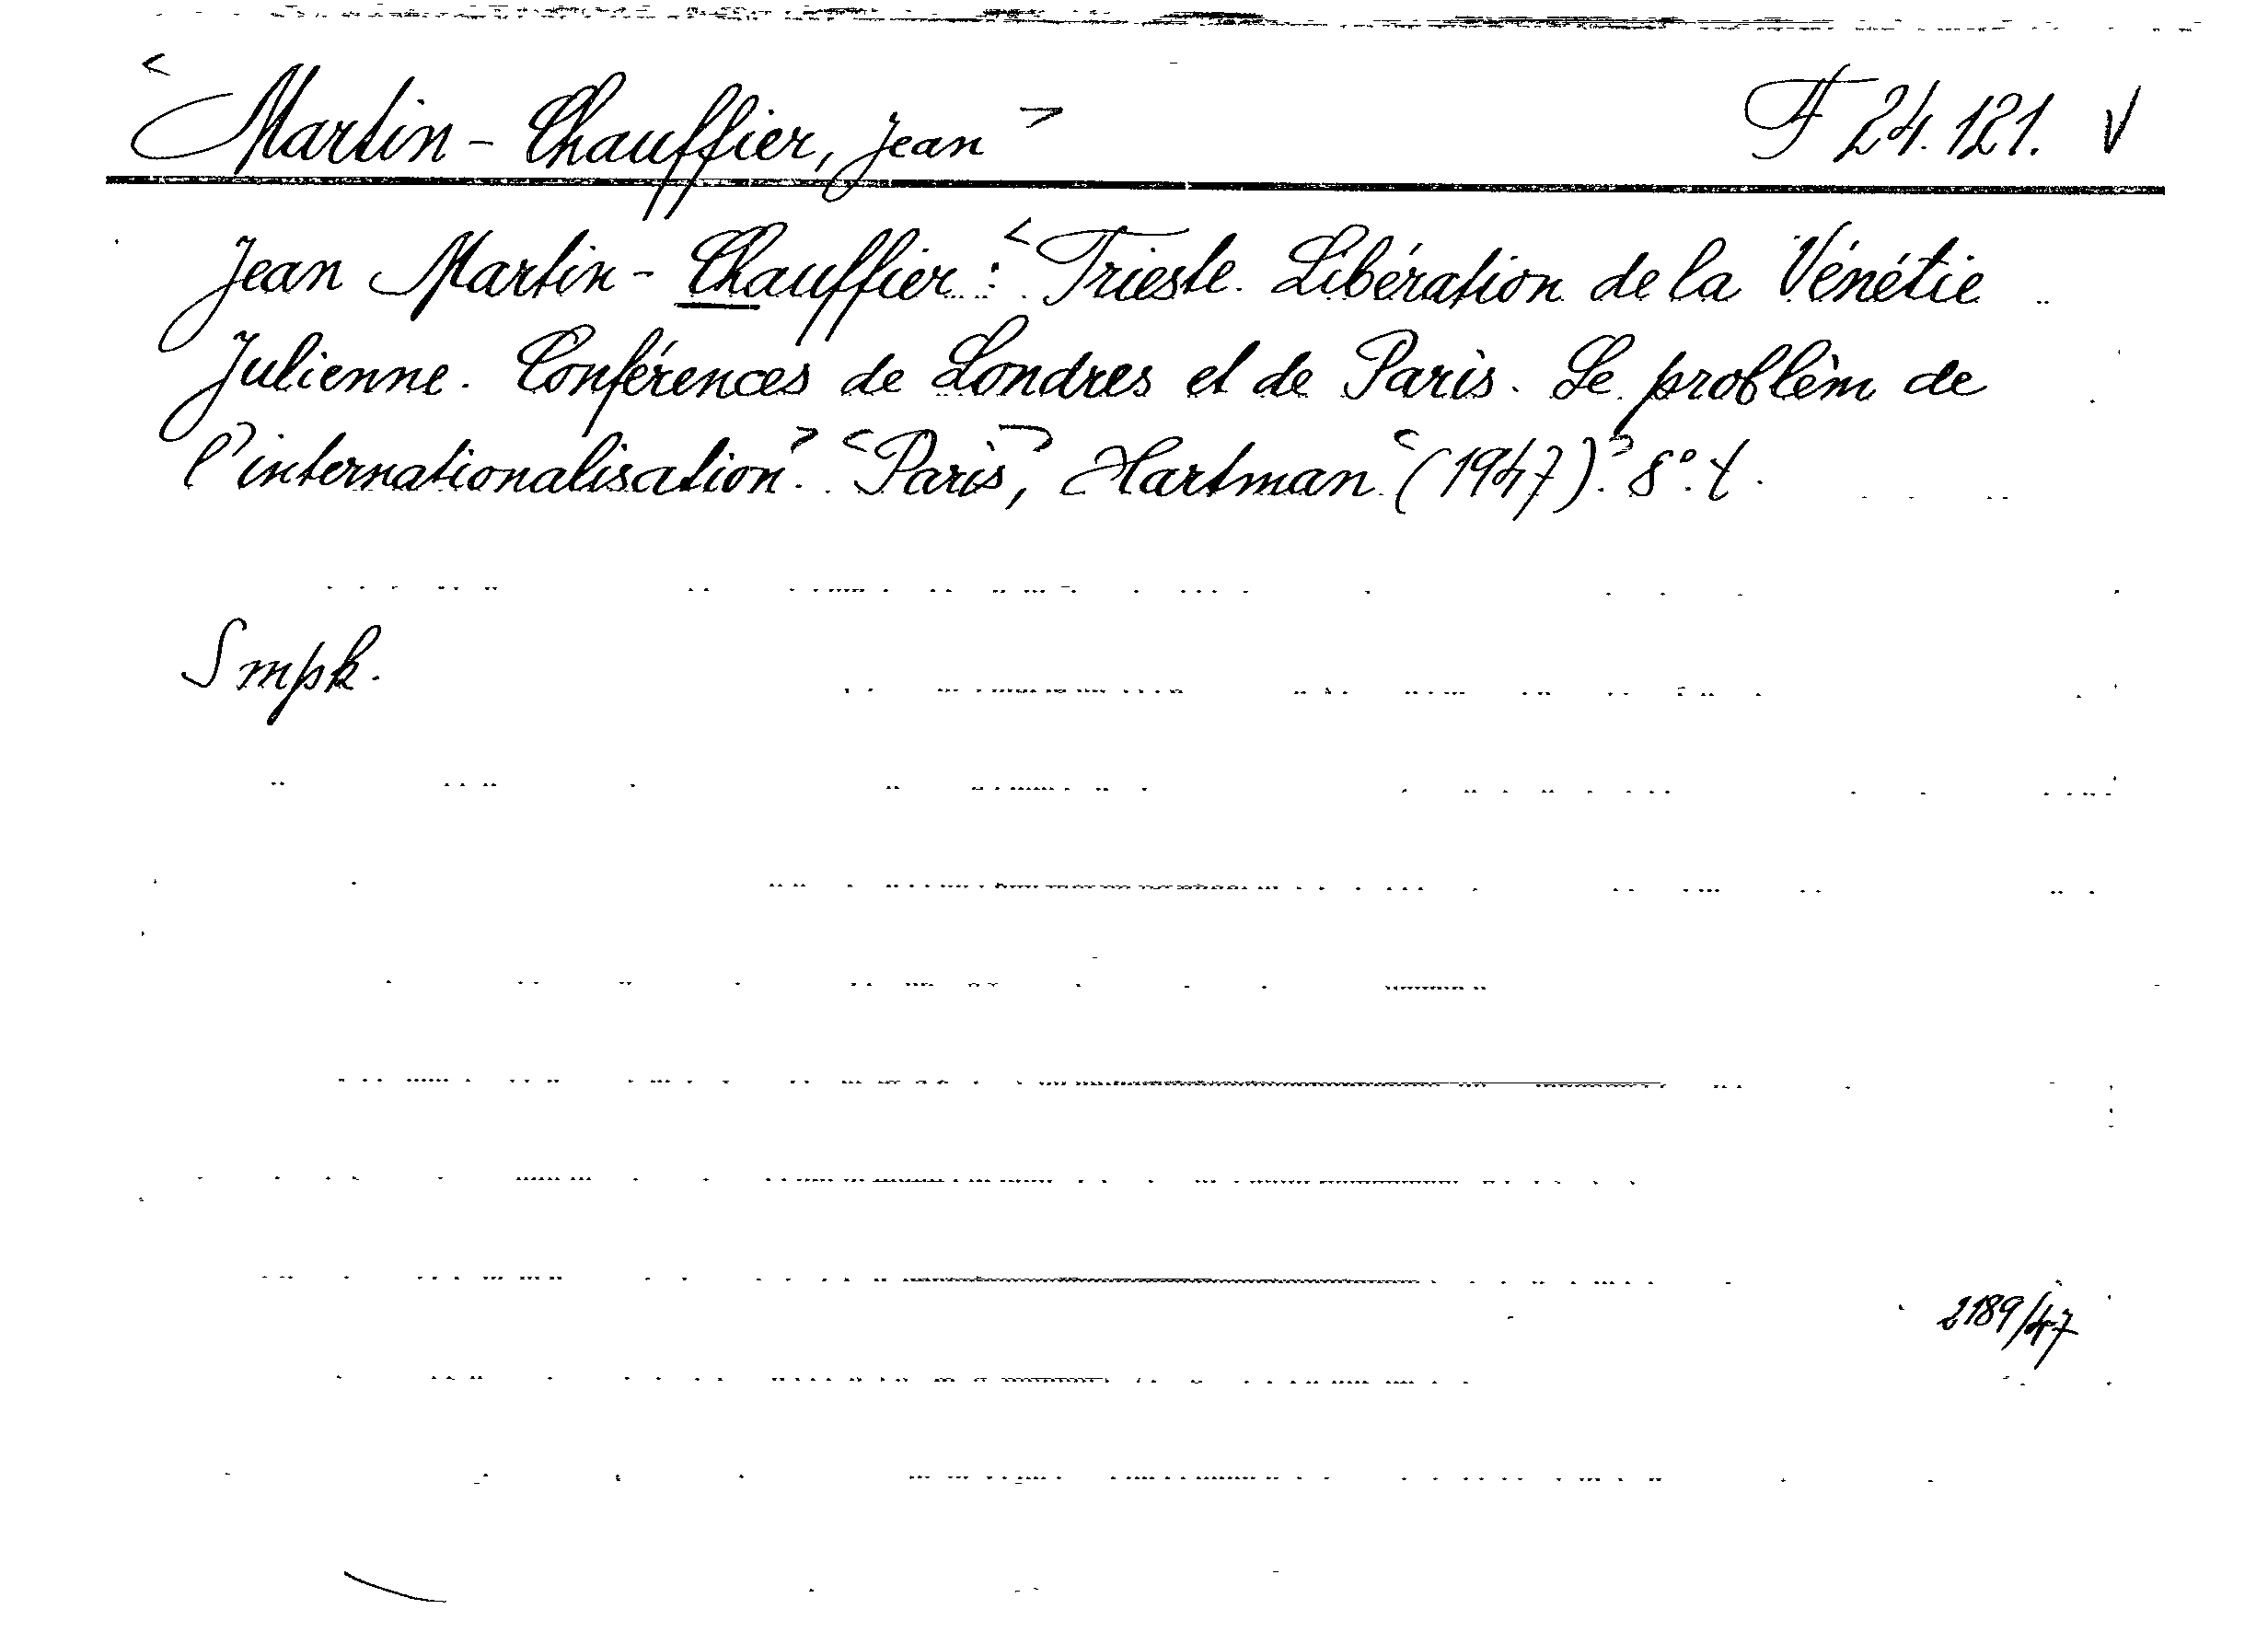 <Martin-Chauffier, Jean> F 24.121. V
Jean Martin-Chauffier: <Trieste. Libération de la Vénétie
Julienne. Conférences de Londres et de Paris. Le problèm de
l'internationalisation.> <Paris>, Hartman <(1947).> 8° t.
Smpk.
2189/47